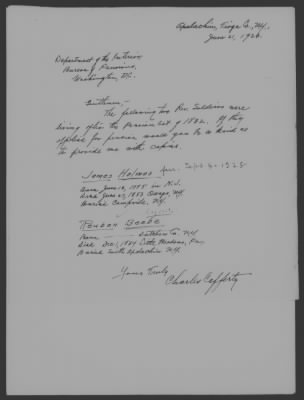 Apalachin, Tioga Co., N.Y.
June 21, 1926.
Department of the Interior
Bureau of Pensions,
Washington, D.C.
Gentlemen:-
The following two Rev. Soldiers were
living after the Pension Act of 1832. If they
applied for pension would you be so kind as
to provide me with copies.
James Holmes
Born June 10, 1755 in N.J.
Died June 27, 1853 Owego N.Y.
Buried Campville, N.Y.
Reuben
Born — Dutchess Co. N.Y.
Died Dec. 1, 1854 Little Meadows, Pa.
Buried South Apalachin N.Y.
Yours Truly
Charles Cafferty